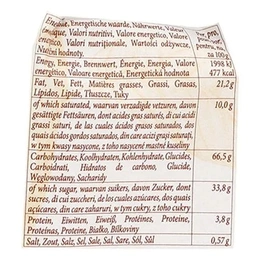 Énergie, Energetische waarde, Nährwerte, Valeur
Valori nutritivi, Valore energetico, Valor
energetico, Valori nutriționale, Wartości odżywcze,
Nutični hodnoty
per,
pentru,
na 100g
Energy, Energie, Brennwert, Énergie, Energia, Valoare 1998 kJ
energetică, Energetická hodnota 477 kcal
Fat, Vet, Fett, Matières grasses, Grassi, Grasas, 21,2g
Lípidos, Lipide, Tłuszcze, Tuky
of which saturated, waarvan verzadigde vetzuren, davon 10,0 g
gesättigte Fettsäuren, dont acides gras saturés, di cui acidi
grassi saturi, de las cuales ácidos grasos saturados, dos
quais ácidos gordos saturados, din care acizi grași saturați,
w tym kwasy nasycone, z toho nasycené mastné kyseliny
Carbohydrates, Koolhydraten, Kohlenhydrate, Glucides, 66,5 g
Carboidrati, Hidratos de carbono, Glucide,
Węglowodany, Sacharidy
of which sugar, waarvan suikers, davon Zucker, dont 33,8 g
sucres, di cui zuccheri, de los cuales azúcares, dos quais
açúcares, din care zaharuri, w tym cukry, z toho cukry
Protein, Eiwitten, Eiweiß, Protéines, Proteine, 3,8 g
Proteínas, Proteine, Białko, Bílkoviny
Salt, Zout, Salz, Sel, Sale, Sal, Sare, Sól, Sůl 0,57g